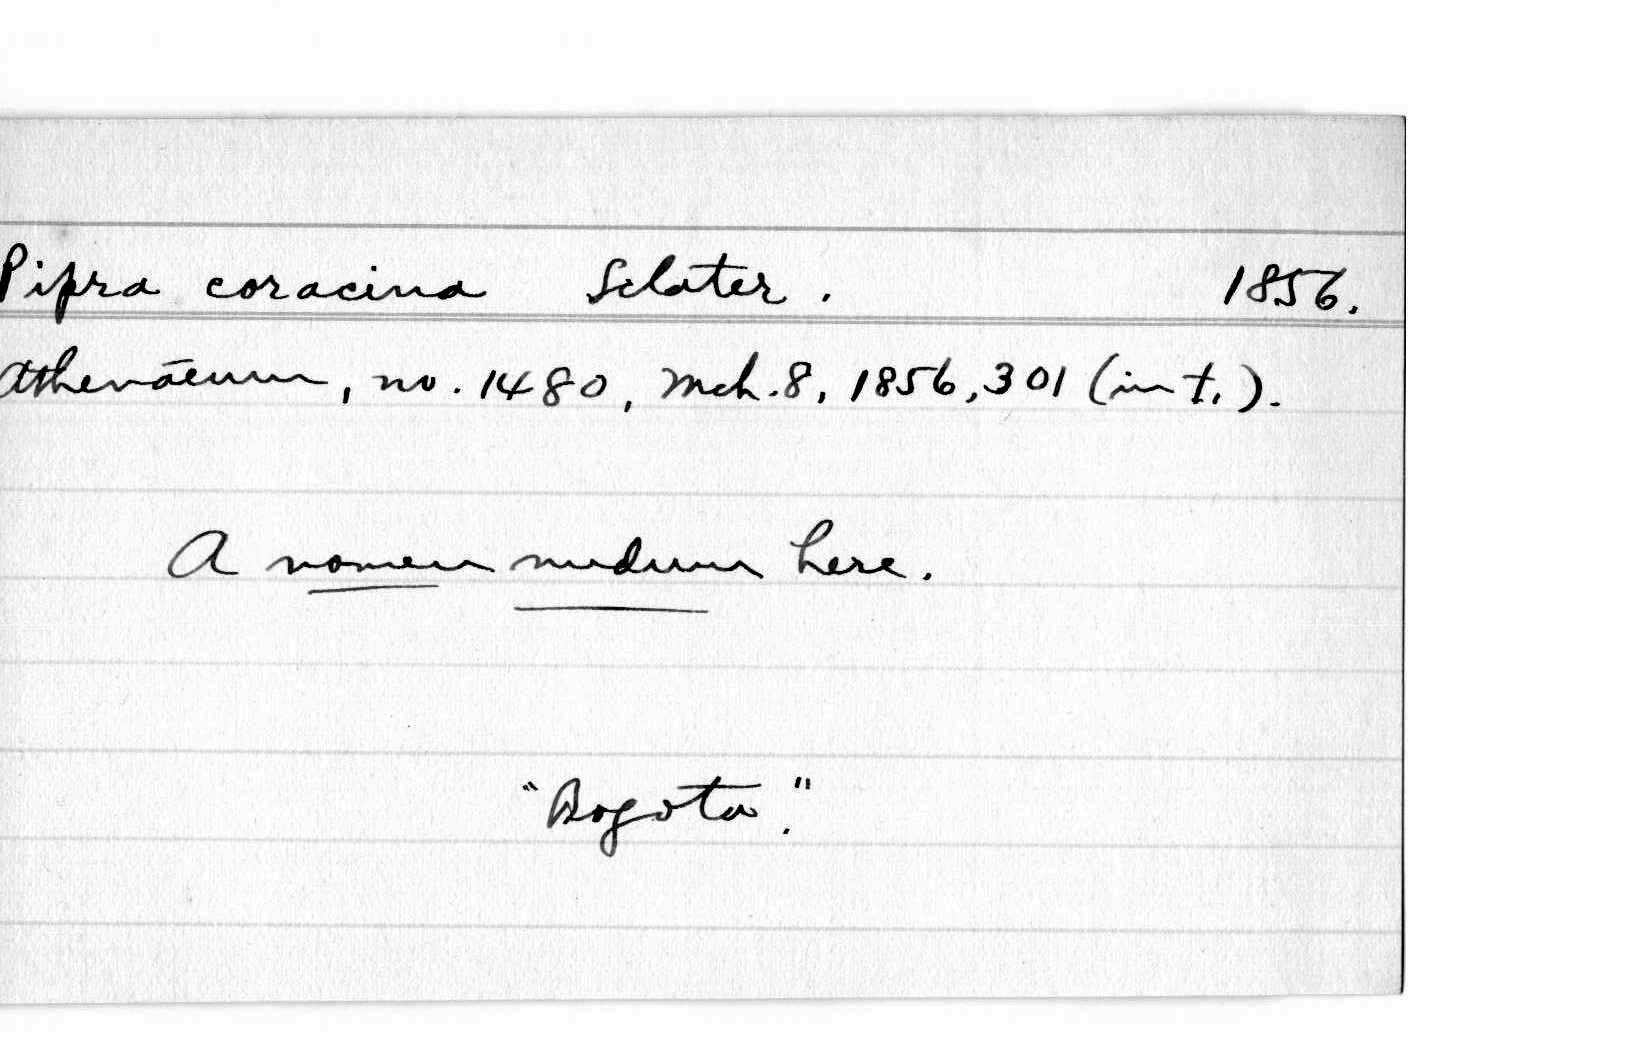 Pipra coracina Sclater. 1856.
Athenāeum, no. 1480, Mch. 8, 1856, 301 (in t.).
A nomen nudum here.
"Bogota."